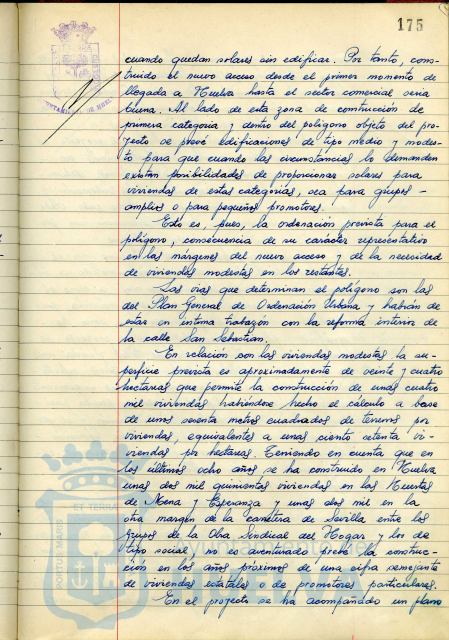 175
cuando quedan solares sin edificar. Por tanto, cons-
truido el nuevo acceso desde el primer momento de
llegada a Huelva hasta el sector comercial seria
buena. Al lado de esta zona de construcción de
primera categoria y dentro del polígono objeto del pro-
yecto se prevé edificaciones de tipo medio y modes-
to para que cuando las circunstancias lo demanden
existan posibilidades de proporcionar solares para
viviendas de estas categorías, sea para grupos -
amplios o para pequeños promotores.
Esto es, pues, la ordenación prevista para el
polígono, consecuencia de su carácter representativo
en las márgenes del nuevo acceso y de la necesidad
de viviendas modestas en los restantes.
Las vias que determinan el polígono son las
del Plan General de Ordenación Urbana y habrán de
estar en intima trabazón con la reforma interior de
la calle San Sebastián.
En relación con las viviendas modestas la su-
perficie prevista es aproximadamente de veinte y cuatro
hectáreas que permite la construcción de unas cuatro
mil viviendas habiéndose hecho el cálculo a base
de unos sesenta metros cuadrados de terrenos por
viviendas, equivalentes a unas ciento setenta vi-
viendas por hectárea. Teniendo en cuenta que en
los últimos ocho años se ha construido en Huelva
unas dos mil quinientas viviendas en las Huertas
de Mena y Esperanza y unas dos mil en la
otra margen de la carretera de Sevilla entre los
grupos de la Obra Sindical del Hogar y los de
tipo social, no es aventurado prevé la construc-
ción en los años próximos de una cifra semejante
de viviendas estatales o de promotores particulares.
En el proyecto se ha acompañado un plano